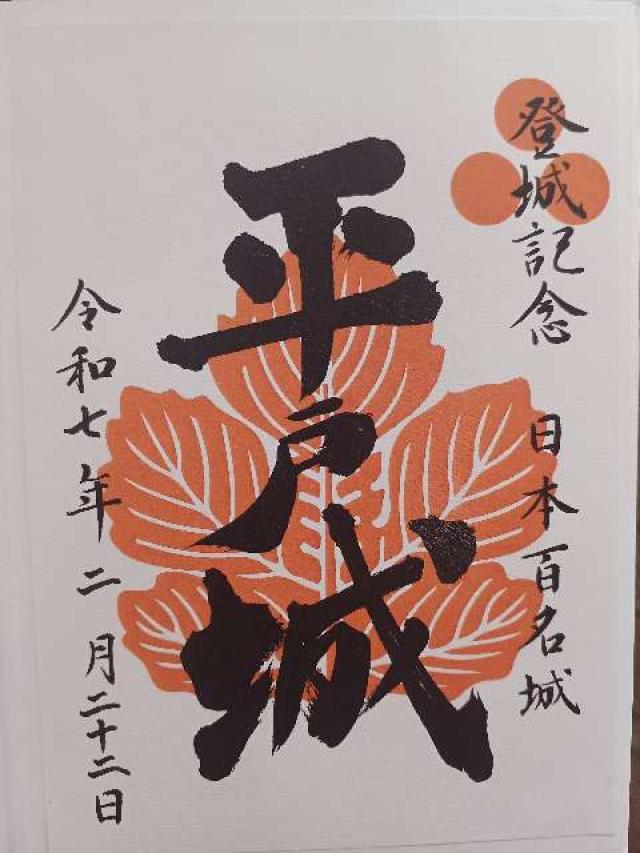 登城記念　日本百名城
平戸城
令和七年二月二十二日